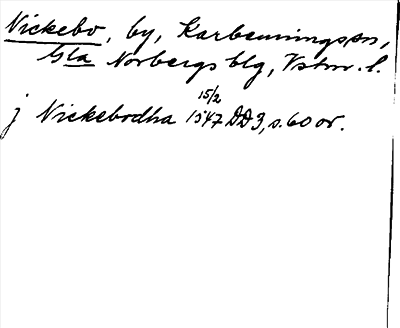 Nickebo, by, Karbenningssn,
Gla Norbergsblg, Vstm. l.
15/2
j Nickebodha 1547 DD3, s. 60 or.